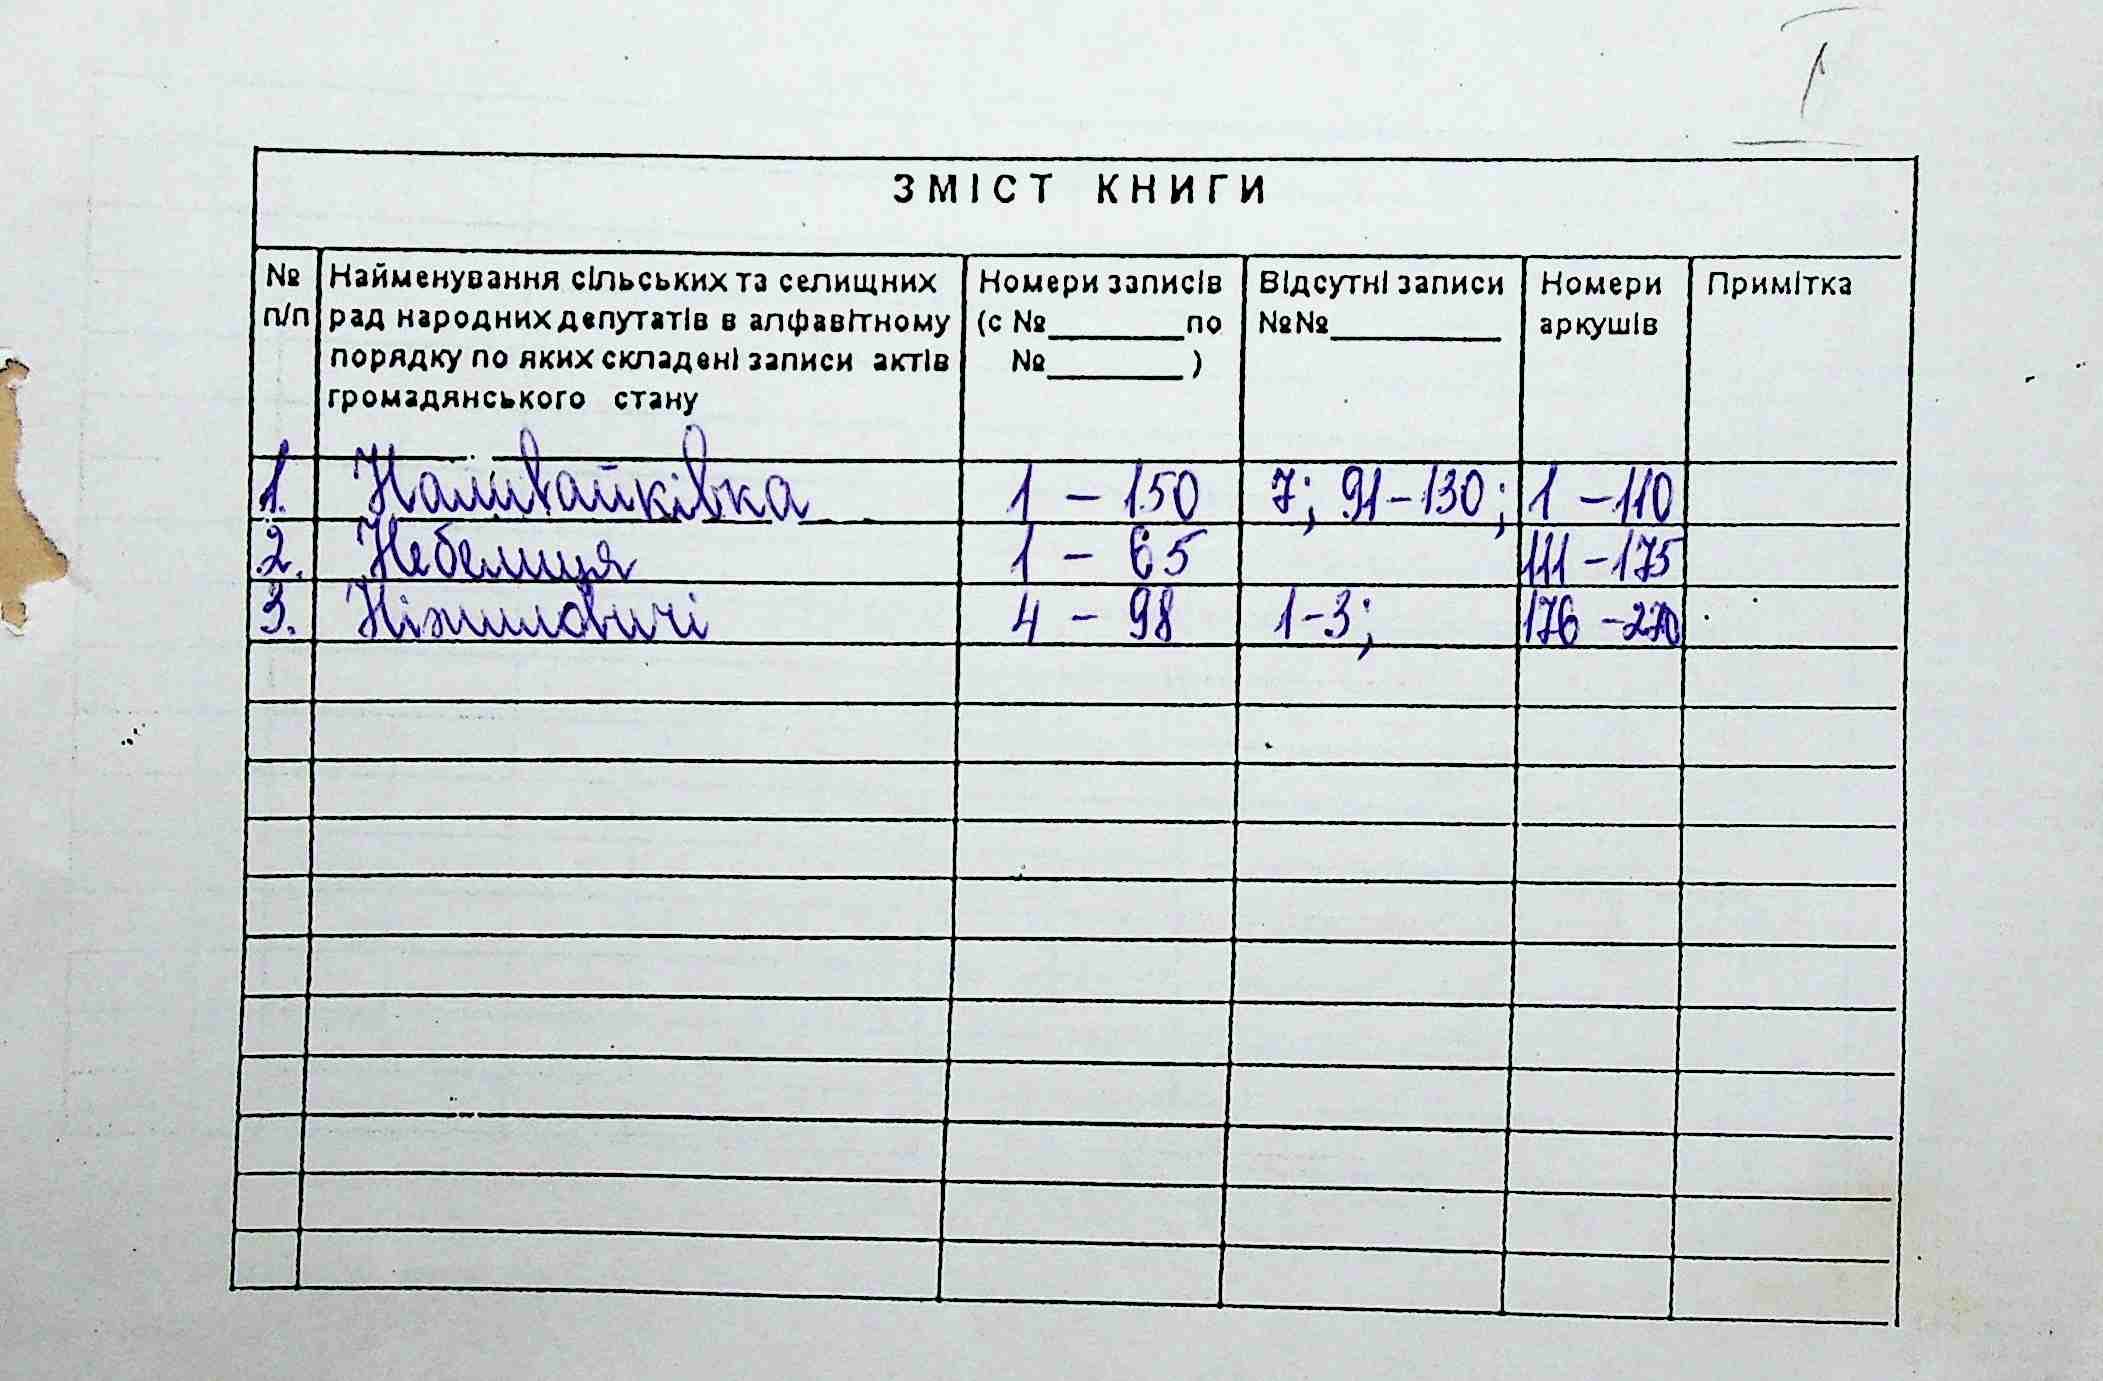 I
ЗМІСТ КНИГИ
№ п/п Найменування сільських та селищних рад народних депутатів в алфавітному порядку по яких складені записи актів громадянського стану Номери записів (с №________ по №________) Відсутні записи №№__________ Номери аркушів Примітка
1. Наливайківка 1 - 150 7; 91-130; 1 - 110
2. Небелиця 1 - 65 111 - 175
3. Ніжиловичі 4 - 98 1-3; 176 - 270